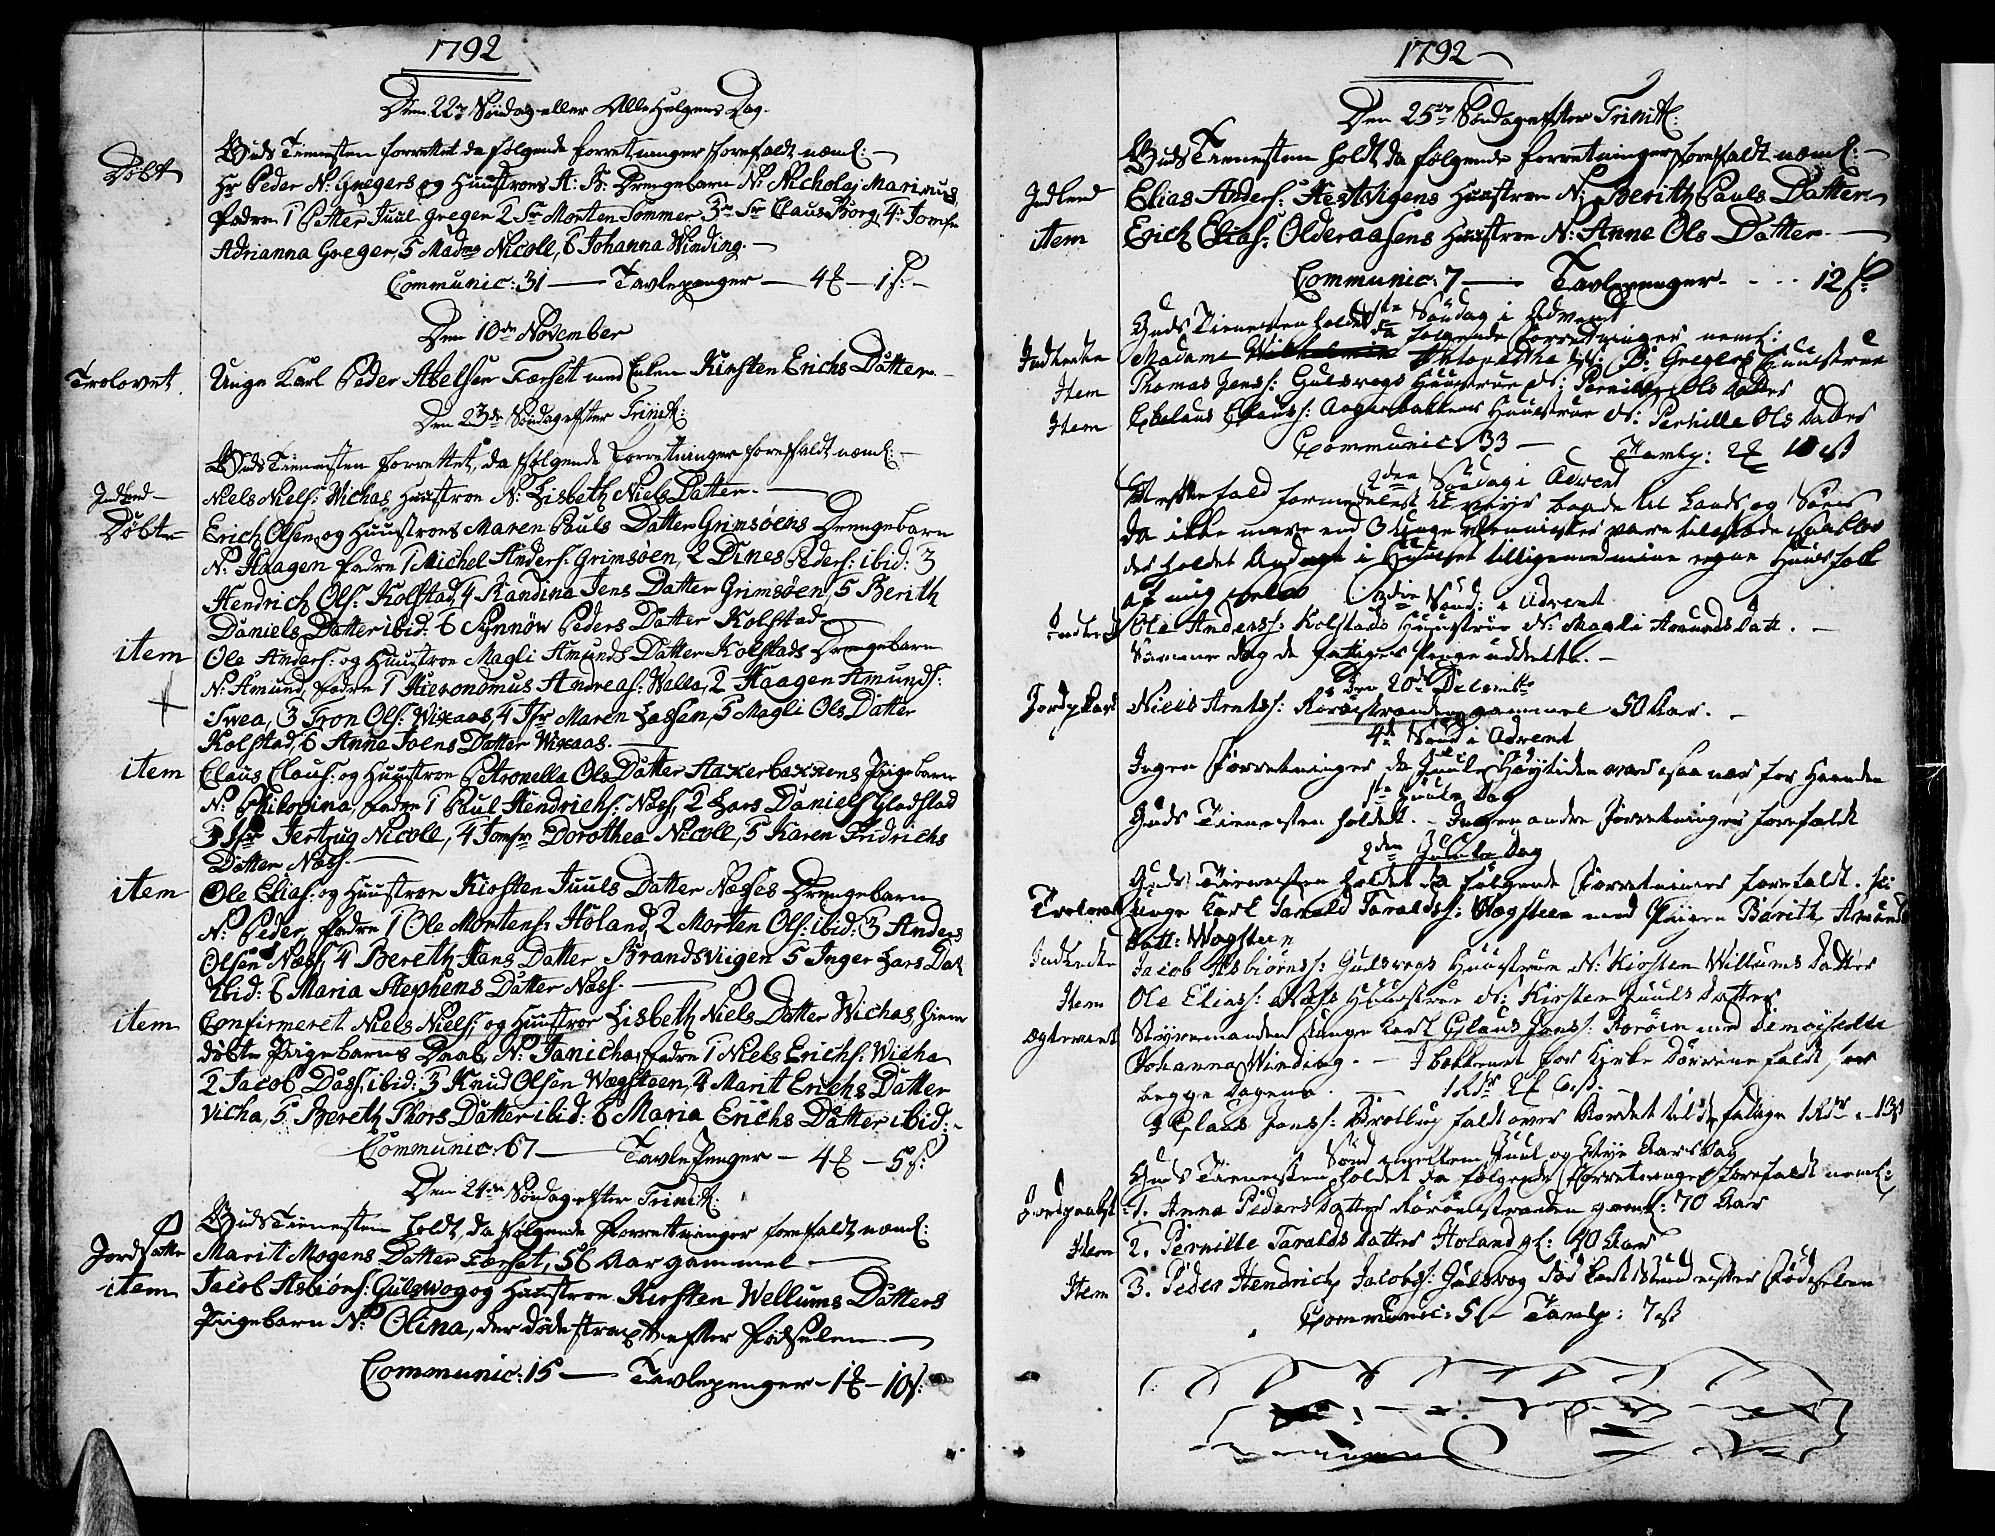 1792
Den 22de Söndag eller Alle Helgens Dag.
Döbt
Guds Tienesten forrettet da følgende Forretninger forefaldt næml: —
Hr Peder N: Gregers og Huustroes A: B: Drengebarn N: Nicholaj Marinus,
Fadre 1 Petter Juul Greger 2 Sr Morten Sommer 3 Sr Claus Borg, 4 Jomfr
Adrianna Greger, 5 Madme Nicoll, 6 Johanna Winding. —
Communic: 31 — Tavlepenger — 4 — 1 s: —
Den 10de November
Trolovet
Unge Karl Peder Abelsen Færset med Enken Kirsten Erichs Datter —
Den 23de Söndag efter Trinit:
Guds Tienesten forrettet, da følgende Forretninger forefaldt næml: —
Indled —
Niels Niels: Wichas Huustroe N: Lisbeth Niels Datter. —
Döbt
Erich Olsen og Huustroes Maren Pauls Datter Grimsöens Drengebarn
N: Haagen Fadre 1 Michel Anders: Grimsöen, 2 Dines Peders: ibid: 3
Hendrich Ols: Kolstad, 4 Randina Jens Datter Grimsöen, 5 Berith
Daniels Datter ibid: 6 Synnöw Peders Datter Kolstad —
item
Ole Anders: og Huustroe Magli Amunds Datter Kolstads Drengebarn
N: Amund, Fadre 1 Hieronomus Andreas: Walla, 2 Haagen Amunds:
Swea, 3 Tron Ols: Wixaas, 4 Jfr Maren Lassen, 5 Magli Ols Datter
Kolstad, 6 Anna Joens Datter Wixaas. —
item
Claus Claus: og Huustroe Petronella Ols Datter Aakerbakkens Pigebarn
N: Philopina, Fadre 1 Paul Hendrichs: Næss, 2 Lars Daniels Gladstad
3 Jfr Jertzug Nicoll, 4 Jomfr Dorothea Nicoll, 5 Karen Fridrichs
Datter Næss. —
item
Ole Elias: og Huustroe Kirsten Juuls Datter Næsses Drengebarn
N: Peder, Fadre 1 Ole Mortens: Holand, 2 Morten Ols: ibid: 3 Anders
Olsen Næss, 4 Bereth Hans Datter Brandsviigen 5 Inger Lars Dat
ibid: 6 Maria Stephens Datter Næss. —
item
Confirmeret Niels Niels: og Huustroe Lisbeth Niels Datter Wichas hiem
döbte Pigebarns Daab N: Janicha, Fadre 1 Niels Erichs: Wicha
2 Jacob Dass: ibid: 3 Knud Olsen Wægsteen, 4 Marit Erichs Datter
Vicha, 5 Bereth Thors Datter ibid: 6 Maria Erichs Datter ibid: —
Communic: 67 — Tavlepenger — 4 — 5 s:
Den 24de Söndag efter Trinit:
Guds Tienesten holdt, da følgende Forretninger forefaldt næml:
Jordsatte
Marit Mogens Datter Færset, 56 Aar gammel —
item
Jacob Asbiörns: Gulswog og Huustroe Kirsten Wellums Datters
Pigebarn N: Olina, der döde strax efter Födselen —
Communic: 15 — Tavlepenger — 1 — 10 s:
1792
Den 25de Söndag efter Trinit:
Guds Tienesten holdt da følgende Forretninger forefaldt næml: —
Indled
Elias Anders: Hestvigens Huustroe N: Berith Pauls Datter. —
item
Erich Elias: Olderaasens Huustroe N: Anne Ols Datter. —
Communic: 7 — Tavlepenger - - - 12 s:
1ste Söndag i Advent
Guds Tienesten holdet da følgende Forretninger næml:
Indledte
Madame Hr: P: Gregers Huustrue
Item
Thomas Jens: Gulsvogs Huustrue N: Pernille Ols Datter
Item
Claus Claus: Aagerbakkens Huustrue N: Pernille Ols Datter
Communic: 33 — Tavlp: 2 10 s
2den Söndag i Advent
Messefald formedelst Uveyr baade til Lands og Söes
da ikke mere end 3 unge Mennisker vare tilstede
der holdet Andagt i Huuset tilligemed mine egne Huusfolk
af mig selv
3die Sönd: i Advent
Indled
Ole Anders: Kolstads Huustrue N: Magli Amunds Datt. —
Samme dag de fattiges Penge uddelte. —
Den 20de Decembr
Jordpkast
Niels Arnts: Rörösstranden gammel 50 Aar. —
4de Sönd i Advent
Ingen Forretninger da Juule Höytiden var saa nær for Haanden
1ste Juule Dag
Guds Tienesten holdet. — Ingen andre Forretninger forefaldt
2den Juule Dag
Guds Tienesten holdet da følgende Forretninger forefaldt.
Trolovet
Unge Karl Tarald Taralds: Wogsteen med Piigen Barith Amunds
Datt: Wogsteen
Indledte
Jacob Asbiörns: Gulsvogs Huustrue N: Kirsten Willums Datter
Item
Ole Elias: Næss Huustrue N: Kirsten Juuls Datter
Ægteviet
Styrmanden Unge Karl Claus Jens: Roröen med Dimoiselle
Johanna Winding. — I Bekkenet for Kirke Dörrene faldt for
begge Dagene. — 1 Rdr 2 6 s.
I Claus Jens: Bröllup faldt over Bordet til de fattige 1 Rdr. 13 s
Sönd mellem Juul og Nye Aars Dag
Guds Tienesten holdet da følgende Forretninger forefaldt næml:
Jordpaakst
1. Anne Peders Datter Rörösstranden gaml: 70 Aar
Item
2. Pernille Taralds Datter Holand gl: 40 Aar
Item
3. Peder Hendrich Jacobs: Gulsvog död kort Stund efter Födselen
Communic: 5 — Tavlp: 7 s